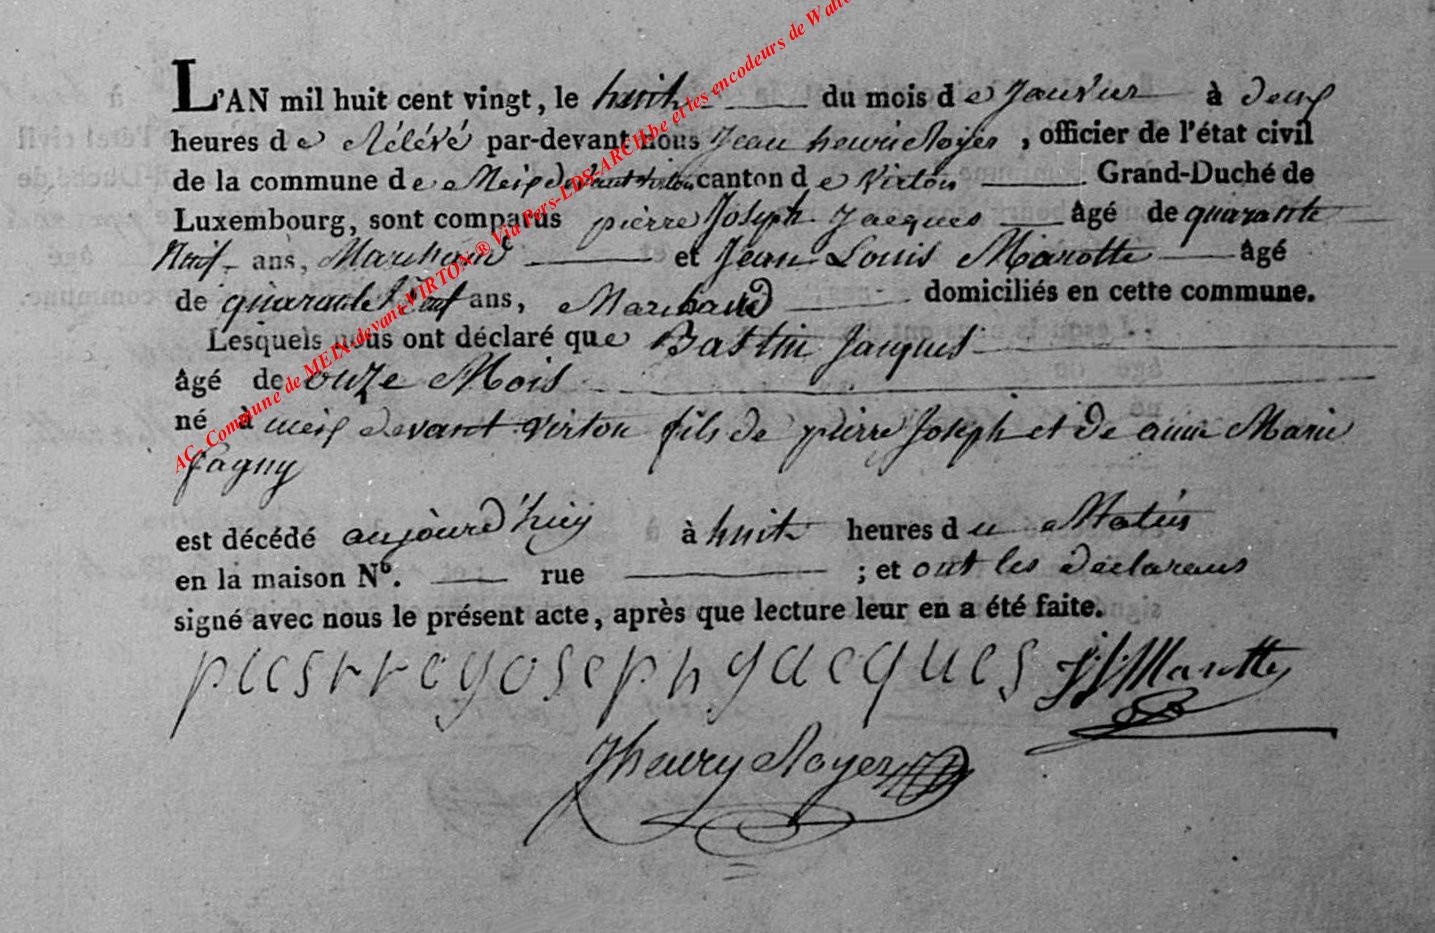 L'AN mil huit cent vingt, le huit du mois de Janvier à deux
heures de Rélévé par-devant nous Jean henri Royer, officier de l'état civil
de la commune de Meix devant virton canton de Virton Grand-Duché de
Luxembourg, sont comparus pierre Joseph Jacques âgé de quarante
Neuf ans, Marchand et Jean Louis Marotte âgé
de quarante Neuf ans, Marchand domiciliés en cette commune.
Lesquels nous ont déclaré que Bastin Jacques
âgé de onze Mois
né à meix devant virton fils de pierre Joseph et de anne Marie
fagny
est décédé aujourd'huy à huit heures du Matin
en la maison No. rue ; et ont les déclarans
signé avec nous le présent acte, après que lecture leur en a été faite.
pierre yoseph yacques JL Marotte
Jhenry Royer
AC_Commune de MEIX-devant-VIRTON ® Via Pers-LDS-ARCH.be et les encodeurs de